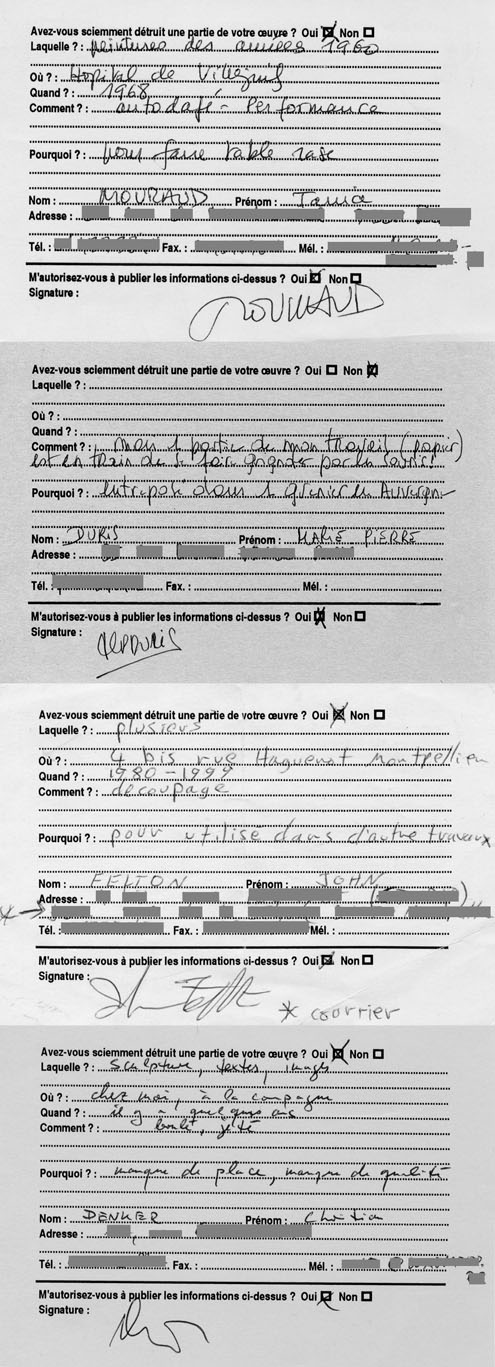 Avez-vous sciemment détruit une partie de votre œuvre ? Oui ☒ Non ☐
Laquelle ? : peintures des années 1960
Où ? : Hopital de Villejuif
Quand ? : 1968
Comment ? : autodafé - Performance
Pourquoi ? : pour faire table rase
Nom : MOURAUD Prénom : Tania
Adresse :
Tél. : Fax. : Mél. :
M'autorisez-vous à publier les informations ci-dessus ? Oui ☒ Non ☐
Signature :
MOURAUD
Avez-vous sciemment détruit une partie de votre œuvre ? Oui ☐ Non ☒
Laquelle ? :
Où ? :
Quand ? :
Comment ? : Mais 1 partie de mon travail (papier)
est en train de se faire par les souris !
Pourquoi ? : entreposé dans 1 grenier en Auvergne
Nom : DURIS Prénom : MARIE PIERRE
Adresse :
Tél. : Fax. : Mél. :
M'autorisez-vous à publier les informations ci-dessus ? Oui ☒ Non ☐
Signature :
MPDURIS
Avez-vous sciemment détruit une partie de votre œuvre ? Oui ☒ Non ☐
Laquelle ? : plusieurs
Où ? : 4 bis rue Haguenot Montpellier
Quand ? : 1980 - 1999
Comment ? : decoupage
Pourquoi ? : pour utilisé dans d'autre travaux
Nom : FELTON Prénom : JOHN
Adresse :
Tél. : Fax. : Mél. :
M'autorisez-vous à publier les informations ci-dessus ? Oui ☒ Non ☐
Signature :
* courrier
Avez-vous sciemment détruit une partie de votre œuvre ? Oui ☒ Non ☐
Laquelle ? : Sculpture, textes, images
Où ? : chez moi, à la campagne
Quand ? : il y a quelques ans
Comment ? : brulé, jeté
Pourquoi ? : manque de place, manque de qualité
Nom : DENKER Prénom : Christian
Adresse :
Tél. : Fax. : Mél. :
M'autorisez-vous à publier les informations ci-dessus ? Oui ☒ Non ☐
Signature :